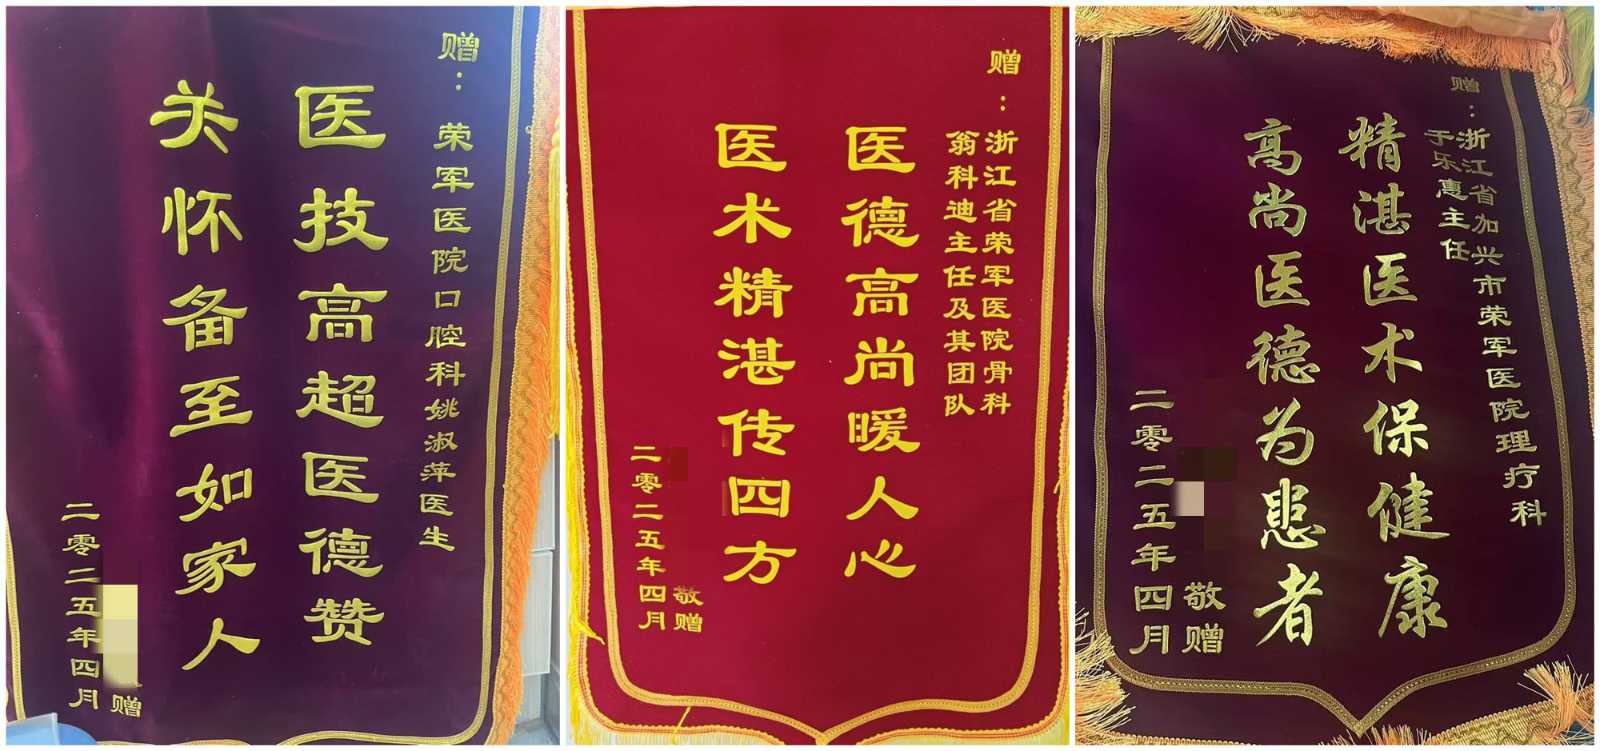 赠：荣军医院口腔科姚淑萍医生
医技高超医德赞
关怀备至如家人
赠
二零二五年四月
赠：浙江省荣军医院骨科
翁科迪主任及其团队
医德高尚暖人心
医术精湛传四方
敬赠
二零二五年四月
赠：浙江省加兴市荣军医院理疗科
于乐惠主任
精湛医术保健康
高尚医德为患者
敬赠
二零二五年四月